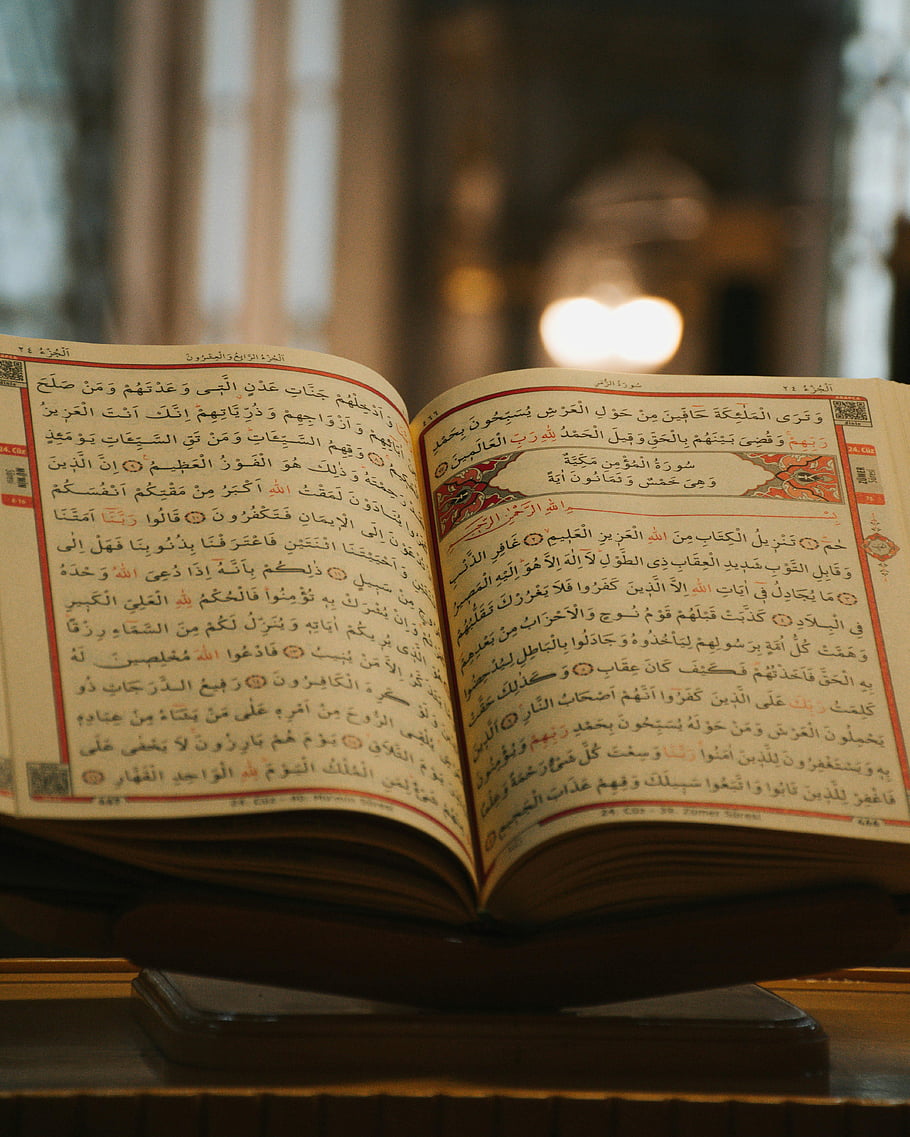 اَلْجُزْءُ ٢٤
سُورَةُ الزُّمَرِ
٤٦٦
وَتَرَى الْمَلٰٓئِكَةَ حَٓافّ۪ينَ مِنْ حَوْلِ الْعَرْشِ يُسَبِّحُونَ بِحَمْدِ
رَبِّهِمْۚ وَقُضِيَ بَيْنَهُمْ بِالْحَقِّ وَق۪يلَ الْحَمْدُ لِلّٰهِ رَبِّ الْعَالَم۪ينَ
سُورَةُ الْمُؤْمِنِ مَكِّيَّةٌ
وَهِيَ خَمْسٌ وَثَمَانُونَ اٰيَةً
بِسْمِ اللّٰهِ الرَّحْمٰنِ الرَّح۪يمِ
حٰمٓۜ ١ تَنْز۪يلُ الْكِتَابِ مِنَ اللّٰهِ الْعَز۪يزِ الْعَل۪يمِۙ ٢ غَافِرِ الذَّنْبِ
وَقَابِلِ التَّوْبِ شَد۪يدِ الْعِقَابِ ذِي الطَّوْلِۜ لَٓا اِلٰهَ اِلَّا هُوَۜ اِلَيْهِ الْمَص۪يرُ
٣ مَا يُجَادِلُ ف۪ٓي اٰيَاتِ اللّٰهِ اِلَّا الَّذ۪ينَ كَفَرُوا فَلَا يَغْرُرْكَ تَقَلُّبُهُمْ
فِي الْبِلَادِ ٤ كَذَّبَتْ قَبْلَهُمْ قَوْمُ نُوحٍ وَالْاَحْزَابُ مِنْ بَعْدِهِمْۖ
وَهَمَّتْ كُلُّ اُمَّةٍ بِرَسُولِهِمْ لِيَأْخُذُوهُ وَجَادَلُوا بِالْبَاطِلِ لِيُدْحِضُوا
بِهِ الْحَقَّ فَاَخَذْتُهُمْ۠ فَكَيْفَ كَانَ عِقَابِ ٥ وَكَذٰلِكَ حَقَّتْ
كَلِمَتُ رَبِّكَ عَلَى الَّذ۪ينَ كَفَرُٓوا اَنَّهُمْ اَصْحَابُ النَّارِۢ ٦ اَلَّذ۪ينَ
يَحْمِلُونَ الْعَرْشَ وَمَنْ حَوْلَهُ يُسَبِّحُونَ بِحَمْدِ رَبِّهِمْ وَيُؤْمِنُونَ
بِه۪ وَيَسْتَغْفِرُونَ لِلَّذ۪ينَ اٰمَنُواۚ رَبَّنَا وَسِعْتَ كُلَّ شَيْءٍ رَحْمَةً وَعِلْمًا
فَاغْفِرْ لِلَّذ۪ينَ تَابُوا وَاتَّبَعُوا سَب۪يلَكَ وَقِهِمْ عَذَابَ الْجَح۪يمِ ٧
24. Cüz - 39. Zümer Sûresi
466
24. Cüz
ZÜMER
Sûresi
75
اَلْجُزْءُ الرَّابِعُ وَالْعِشْرُونَ
اَلْجُزْءُ ٢٤
وَاَدْخِلْهُمْ جَنَّاتِ عَدْنٍۨ الَّت۪ي وَعَدْتَهُمْ وَمَنْ صَلَحَ
اٰبَٓائِهِمْ وَاَزْوَاجِهِمْ وَذُرِّيَّاتِهِمْۜ اِنَّكَ اَنْتَ الْعَز۪يزُ
٨ وَقِهِمُ السَّيِّـَٔاتِۜ وَمَنْ تَقِ السَّيِّـَٔاتِ يَوْمَئِذٍ
رَحِمْتَهُۜ وَذٰلِكَ هُوَ الْفَوْزُ الْعَظ۪يمُ۟ ٩ اِنَّ الَّذ۪ينَ
يُنَادَوْنَ لَمَقْتُ اللّٰهِ اَكْبَرُ مِنْ مَقْتِكُمْ اَنْفُسَكُمْ
تُدْعَوْنَ اِلَى الْا۪يمَانِ فَتَكْفُرُونَ ١٠ قَالُوا رَبَّنَٓا اَمَتَّنَا
وَاَحْيَيْتَنَا اثْنَتَيْنِ فَاعْتَرَفْنَا بِذُنُوبِنَا فَهَلْ اِلٰى
مِنْ سَب۪يلٍ ١١ ذٰلِكُمْ بِاَنَّهُٓ اِذَا دُعِيَ اللّٰهُ وَحْدَهُ
وَاِنْ يُشْرَكْ بِه۪ تُؤْمِنُواۜ فَالْحُكْمُ لِلّٰهِ الْعَلِيِّ الْكَب۪يرِ
الَّذ۪ي يُر۪يكُمْ اٰيَاتِه۪ وَيُنَزِّلُ لَكُمْ مِنَ السَّمَٓاءِ رِزْقًاۜ
اِلَّا مَنْ يُن۪يبُ ١٣ فَادْعُوا اللّٰهَ مُخْلِص۪ينَ لَهُ
وَلَوْ كَرِهَ الْكَافِرُونَ ١٤ رَف۪يعُ الدَّرَجَاتِ ذُو
يُلْقِي الرُّوحَ مِنْ اَمْرِه۪ عَلٰى مَنْ يَشَٓاءُ مِنْ عِبَادِه۪
يَوْمَ التَّلَاقِۙ ١٥ يَوْمَ هُمْ بَارِزُونَۚ لَا يَخْفٰى عَلَى
شَيْءٌۜ لِمَنِ الْمُلْكُ الْيَوْمَۜ لِلّٰهِ الْوَاحِدِ الْقَهَّارِ ١٦
24. Cüz - 40. Mü'min Sûresi
24. Cüz
8-16